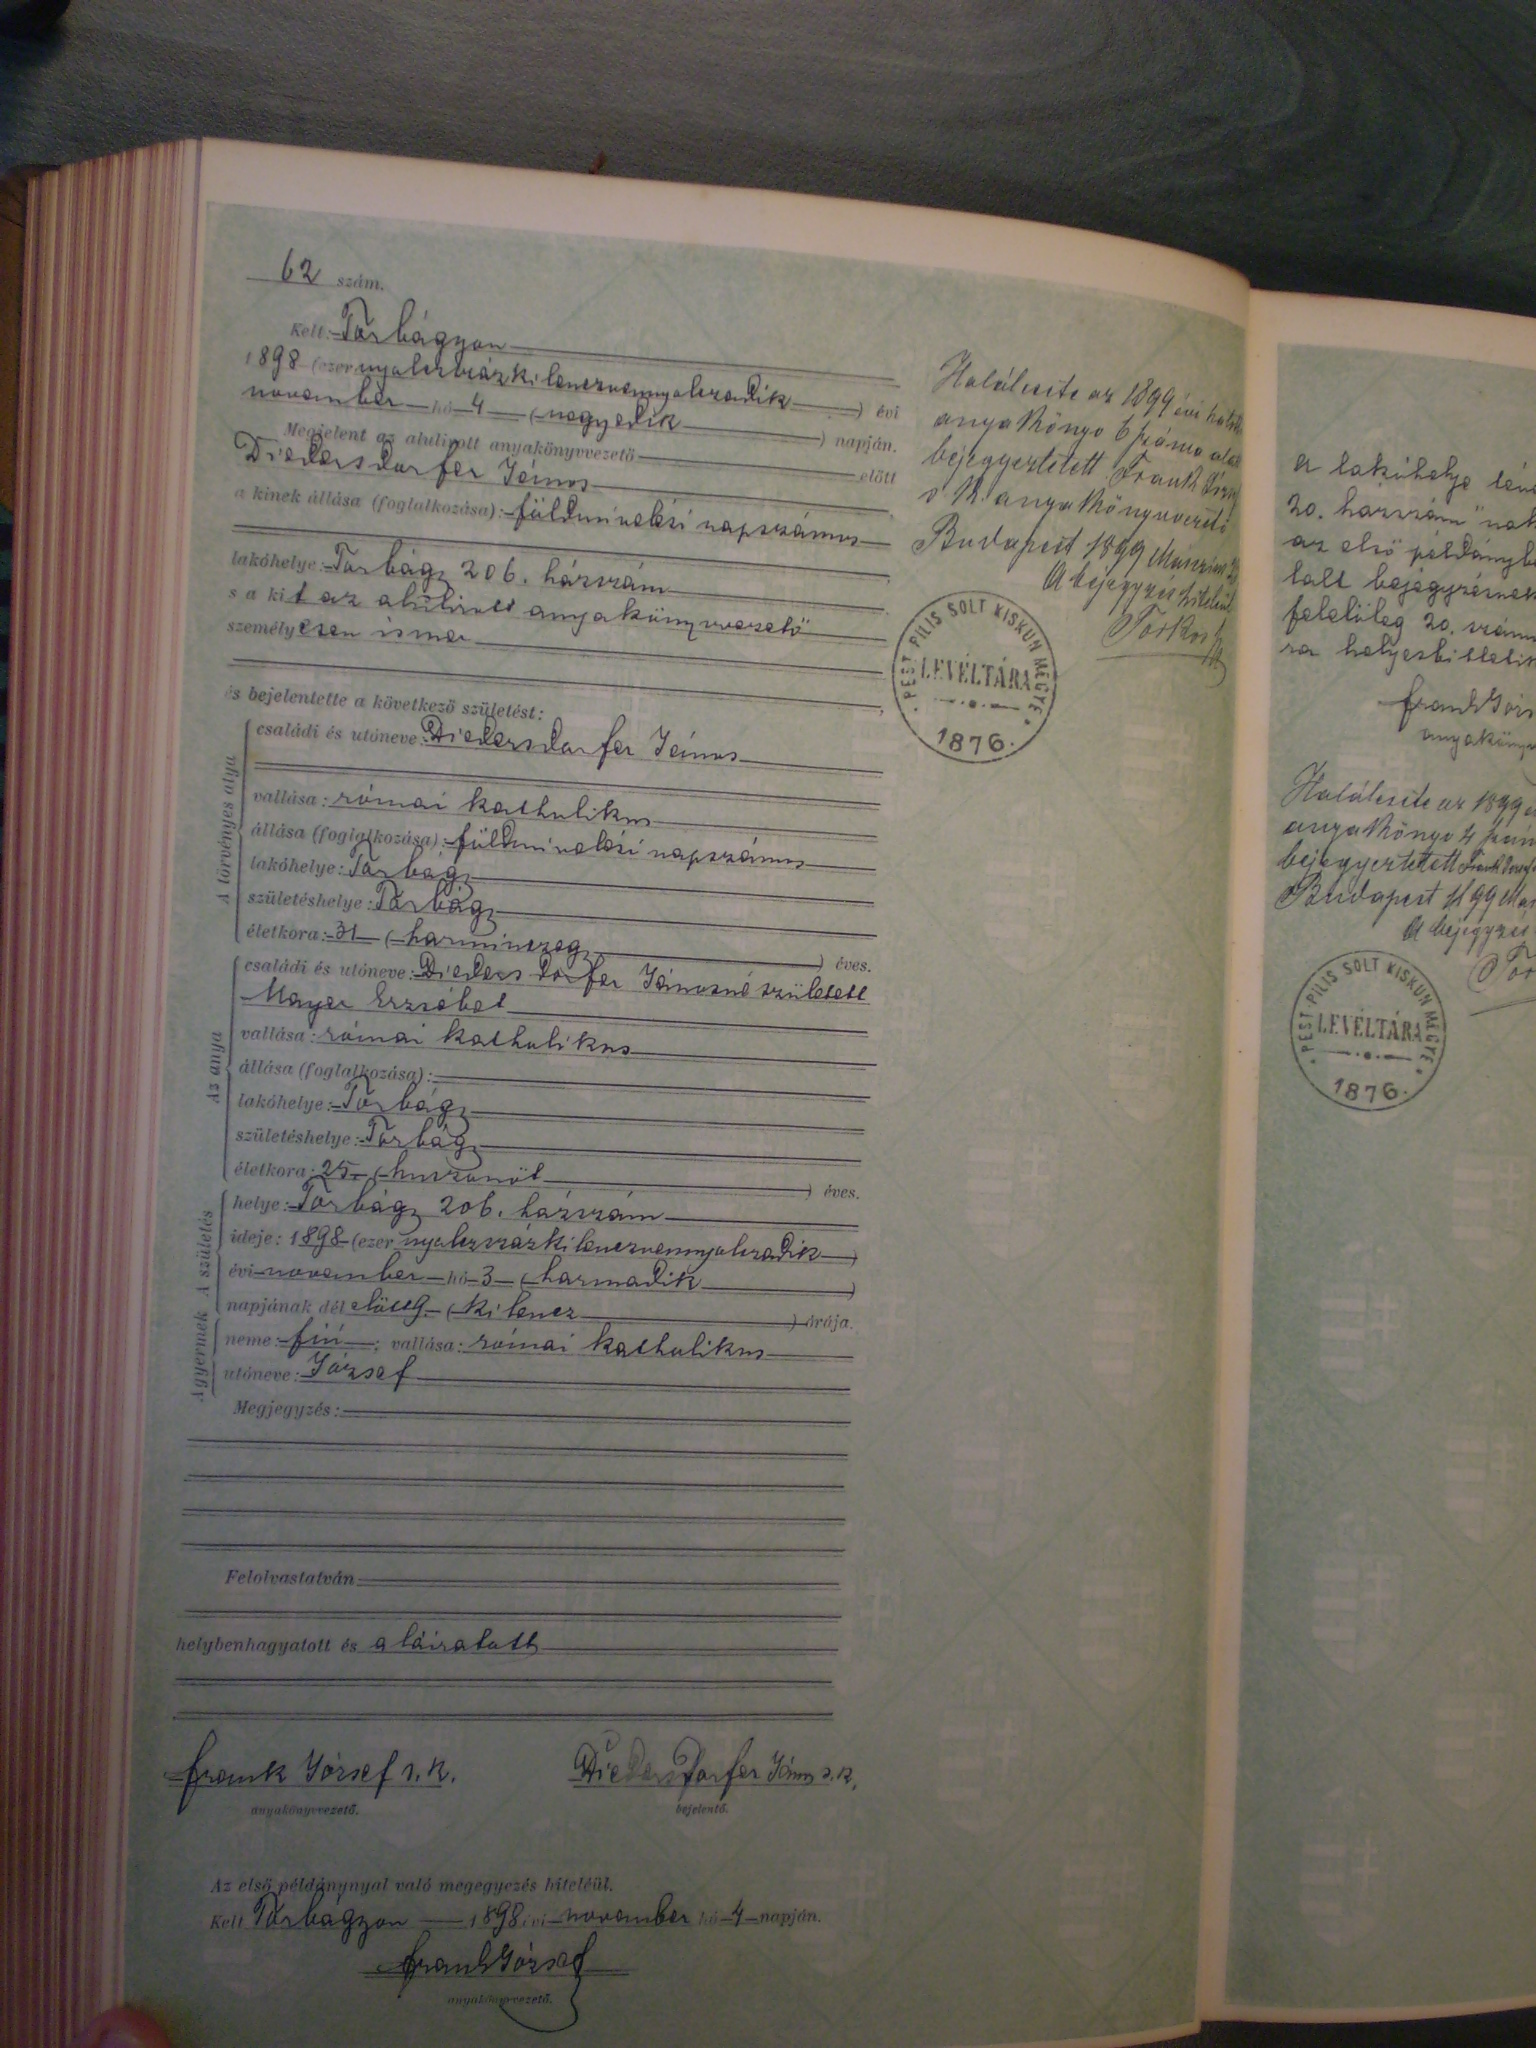 62 szám.
Kelt: Torbágyon
1898 (ezer nyolczszázkilenczvennyolczadik) évi
november hó 4 (negyedik) napján.
Megjelent az alulirott anyakönyvvezető előtt
Diedersdorfer János
a kinek állása (foglalkozása): földmivelési napszámos
lakóhelye: Torbágy 206. házszám
s a kit az alulirott anyakönyvvezető
személyesen ismer
és bejelentette a következő születést:
A törvényes atya
családi és utóneve: Diedersdorfer János
vallása: római katholikus
állása (foglalkozása): földmivelési napszámos
lakóhelye: Torbágy
születéshelye: Torbágy
életkora: 31 (harminczegy) éves.
Az anya
családi és utóneve: Diedersdorfer Jánosné született
Mayer Erzsébet
vallása: római katholikus
állása (foglalkozása):
lakóhelye: Torbágy
születéshelye: Torbágy
életkora: 25 (huszonöt) éves.
A születés
helye: Torbágy 206. házszám
ideje: 1898 (ezer nyolczszázkilenczvennyolczadik)
évi november hó 3 (harmadik)
napjának dél előtt 9 (kilencz) órája.
A gyermek
neme: fiú; vallása: római katholikus
utóneve: József
Megjegyzés:
Felolvastatván
helybenhagyatott és aláiratott
Frank József s. k.
anyakönyvvezető.
Diedersdorfer János s. k.
bejelentő.
Az első példánynyal való megegyezés hiteléül.
Kelt Torbágyon 1898 évi november hó 4 napján.
Frank József
anyakönyvvezető.
Halálesete az 1899 évi
anyakönyv 6 száma
bejegyeztetett Frank
s k. anyakönyvvezető
Budapest 1899
A bejegyzés hiteléül
PEST PILIS SOLT KISKUN MEGYE
LEVÉLTÁRA
1876.
a lakóhelye
20. házszám"
az első
bejegyzésnek
felelőleg 20.
ra helyesbittetik
Frank
Halálesete az 1899
anyakönyv 4
bejegyeztetett
Budapest 1899
A bejegyzés
PEST PILIS SOLT KISKUN MEGYE
LEVÉLTÁRA
1876.